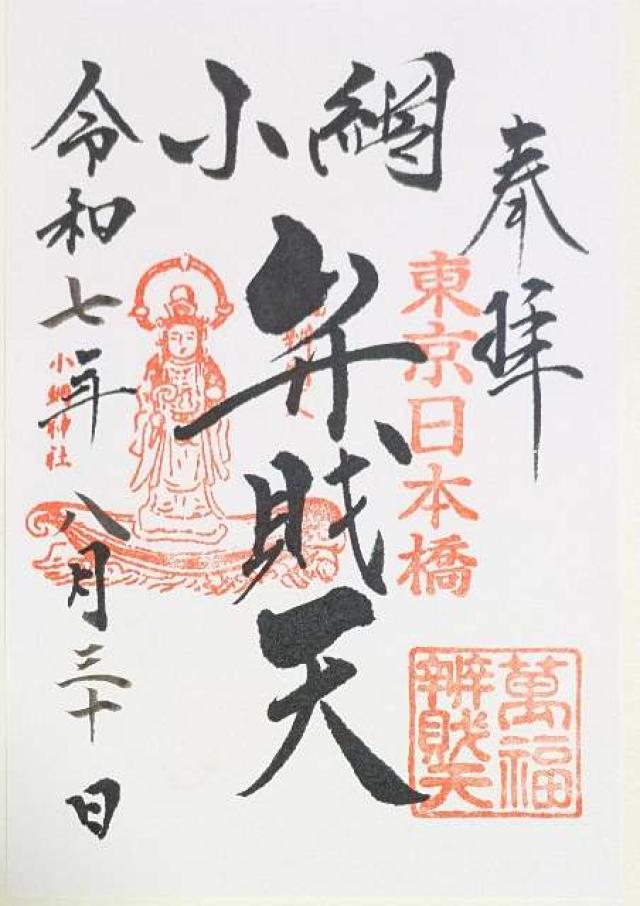 奉拝
東京日本橋
小網
弁財天
萬福
辨財天
小網神社
令和七年八月三十日